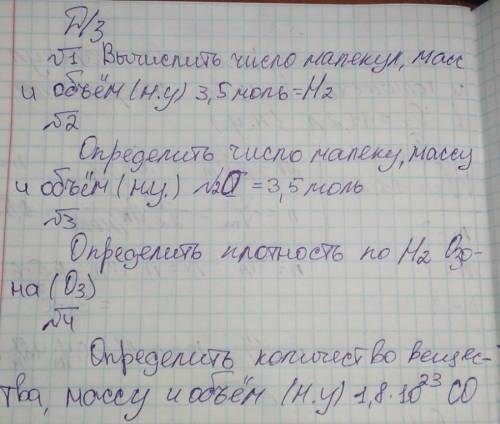 Д/З
√1 Вычислить число малекул, масс
и объём (н.у) 3,5 моль = H2
√2
Определить число малеку, массу
и объём (н.у.) N2O = 3,5 моль
√3
Определить плотность по H2 Озо-
на (O3)
√4
Определить количество вещес-
тва, массу и объём (н.у) 1,8·10²³ CO